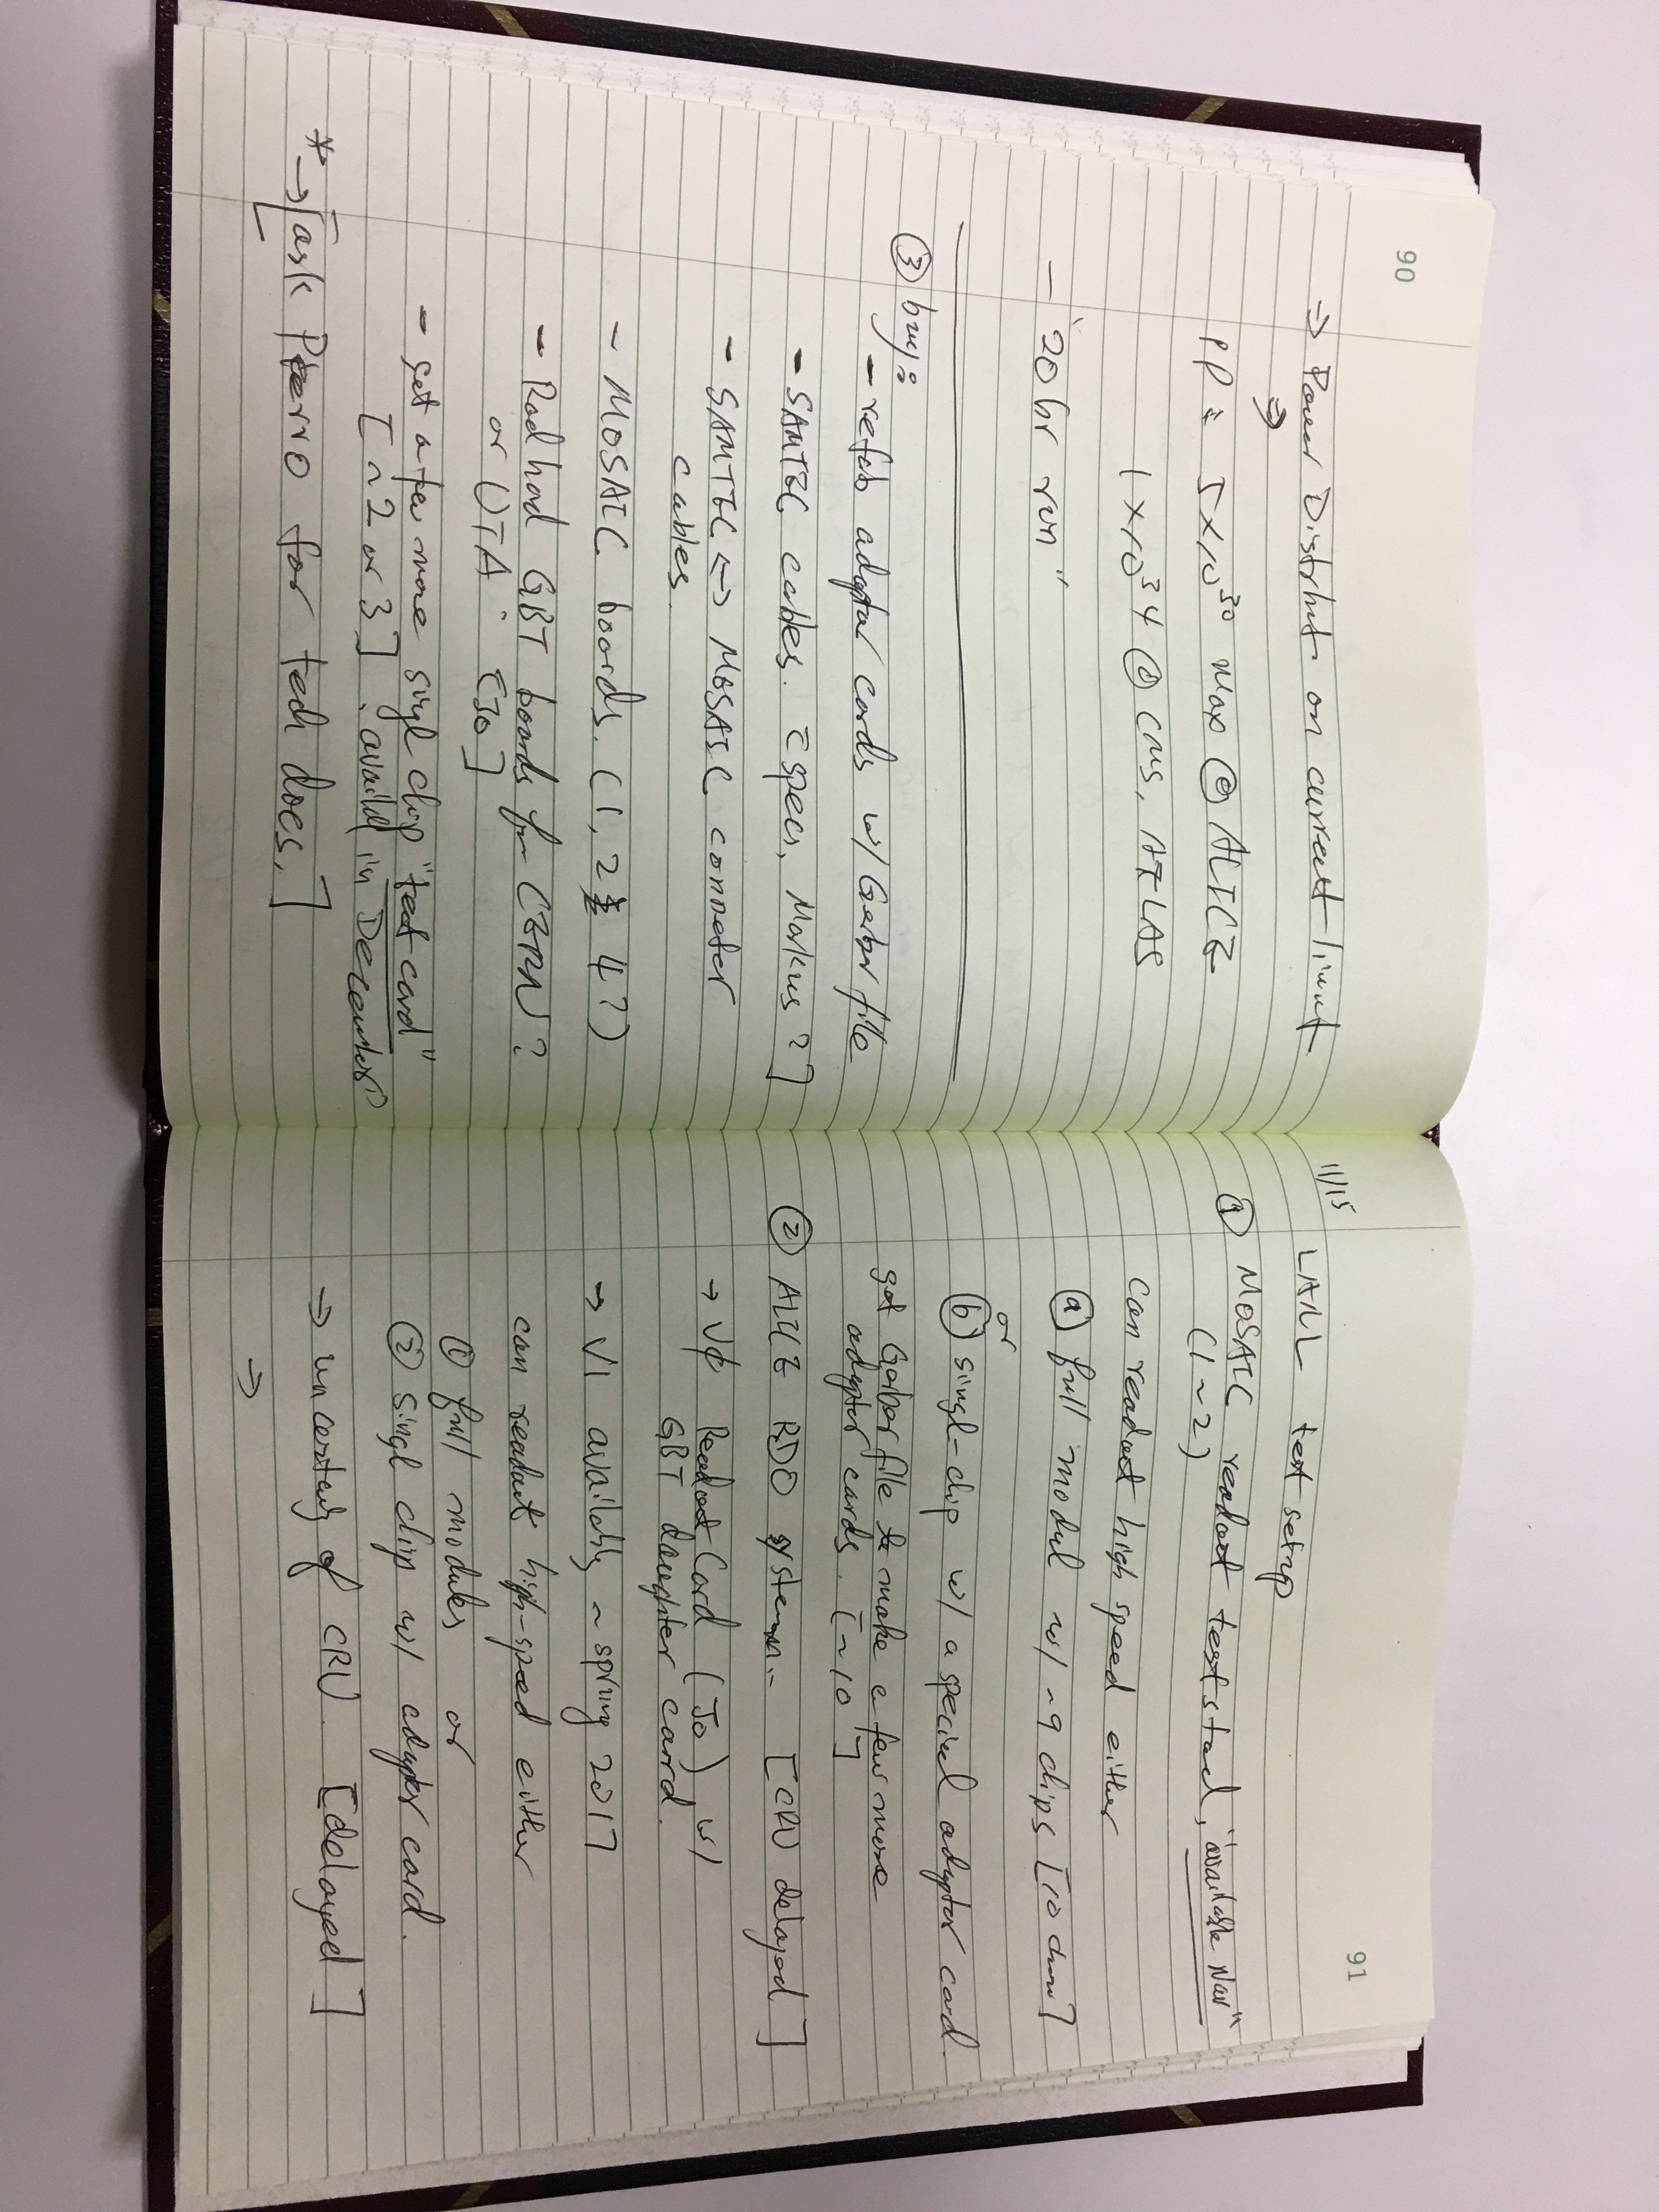 90
→ Power Distribut on current limit
⇒
PP: 5×10³⁰ max @ ALICE
1×10³⁴ @ CMS, ATLAS
- "20 hr run"
③ buy:
- refab adaptor cards w/ Gerber file
- SAMTEC cables. [specs, Markus?]
- SAMTEC ↔ MOSAIC conneter
cables.
- MOSAIC boards. (1, 2 4?)
- Rad hard GBT boards for CERN?
or UTA. [Jo]
- get a few more singl chip "test card"
[~2 or 3]. availabl in December
*→ [ask Pierro for tech does,]
91
11/15 LANL test setup
① MOSAIC readout test stand, "available Now"
(1~2)
can readout high speed either
ⓐ full modul w/ ~9 chips [10 chan]
or
ⓑ singl-chip w/ a special adaptor card.
got Gerber file to make a few more
adaptor cards. [~10]
② ALICE RDO system. [CRU delayed]
→ Vφ Readout Card (Jo), w/
GBT daughter card.
→ V1 availably ~ spring 2017
can readout high-speed either
① full modules or
② singl chip w/ adapter card.
→ uncertainty of CRU. [delayed]
⇒